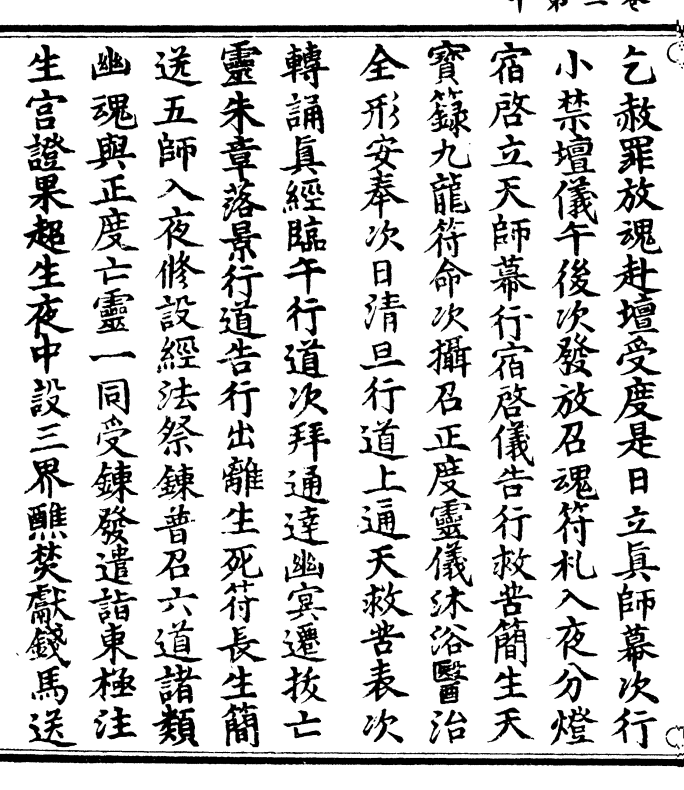 乞赦罪放魂赴壇受度是日立眞師幕次行
小禁壇儀午後次發放召魂符札入夜分燈
宿啓立天師幕行宿啓儀告行救苦簡生天
寶籙九龍符命次攝召正度靈儀沐浴醫治
全形安奉次日清旦行道上通天救苦表次
轉誦眞經臨午行道次拜通達幽冥遷拔亡
靈朱章落景行道告行出離生死符長生簡
送五師入夜修設經法祭鍊普召六道諸類
幽魂與正度亡靈一同受鍊發遣詣東極注
生宫證果超生夜中設三界醮焚獻錢馬送